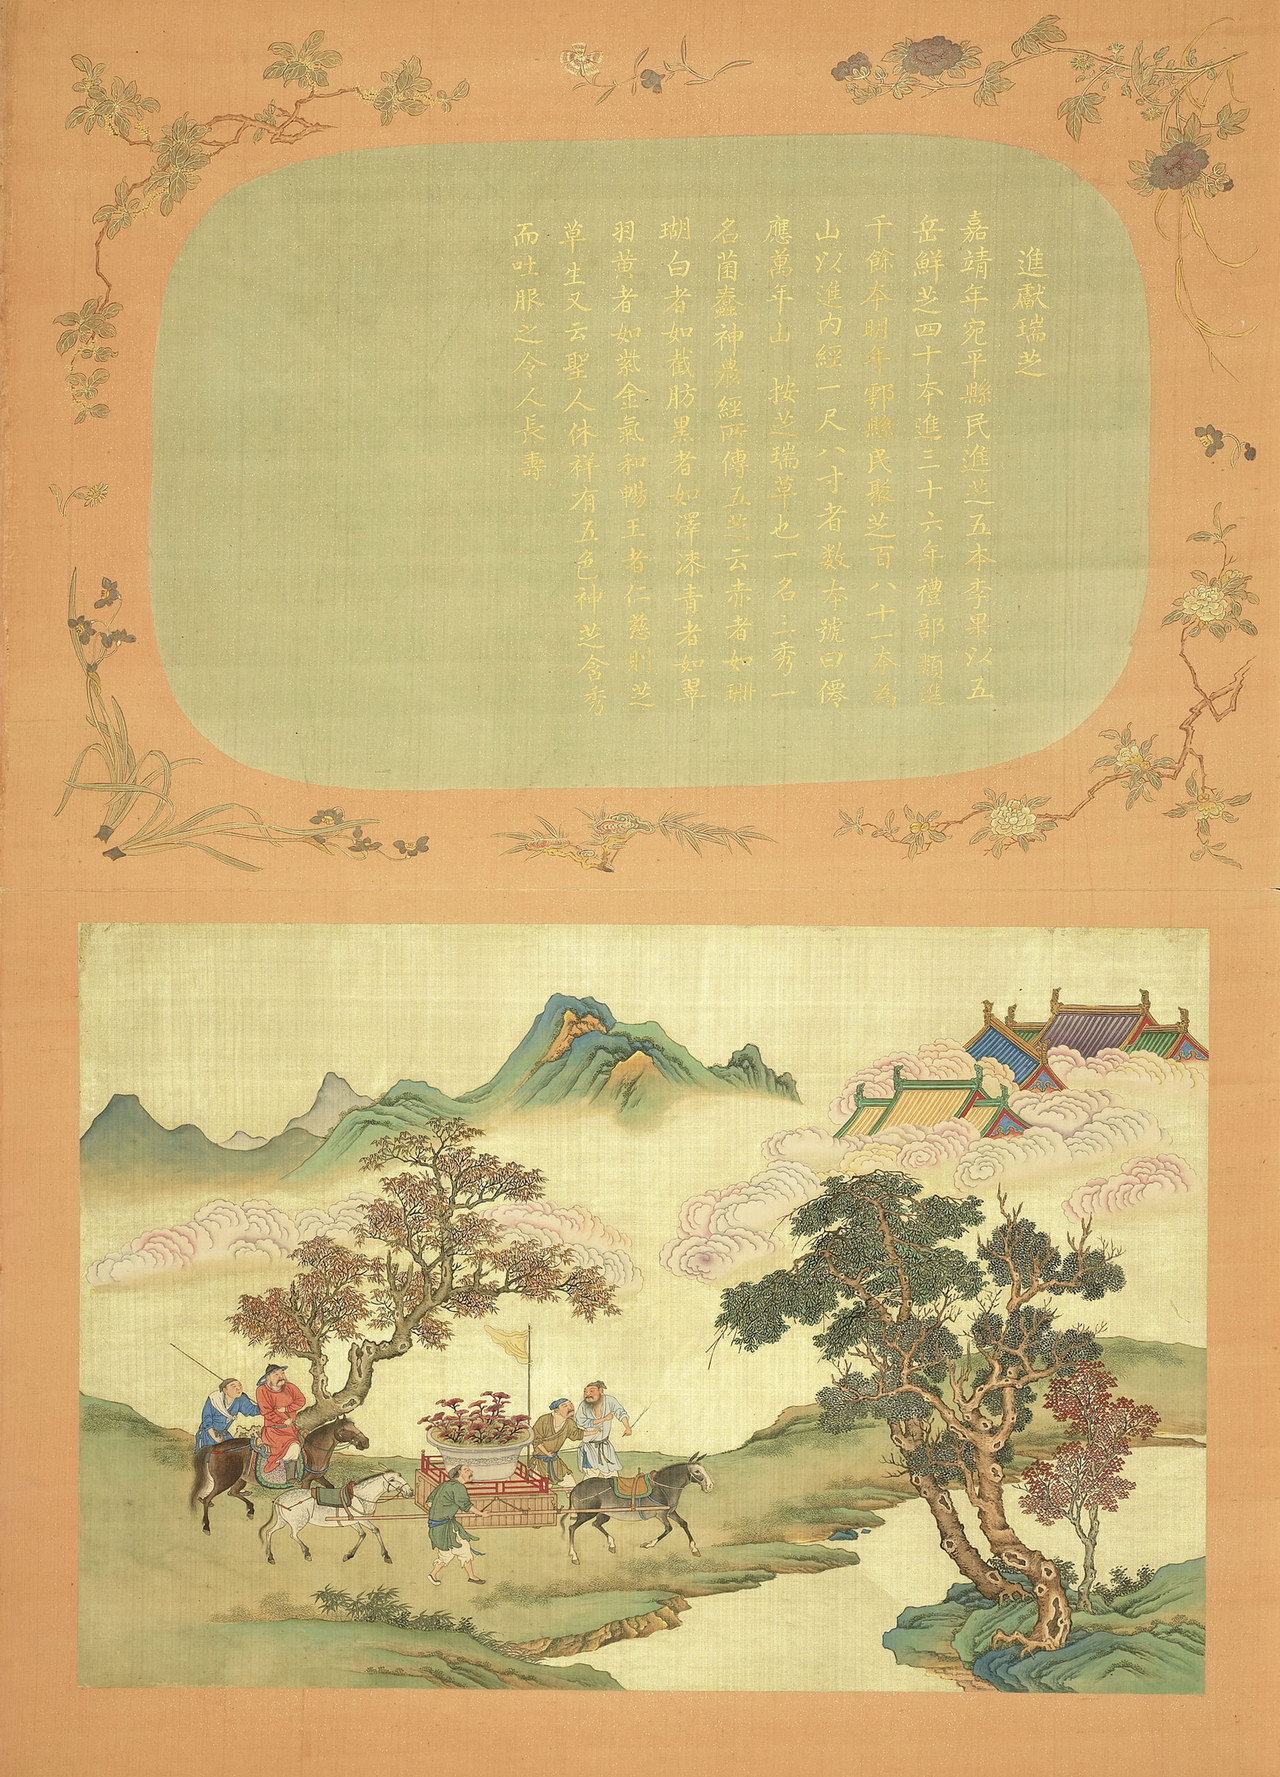 進獻瑞芝
嘉靖年宛平縣民進芝五本李果以五
岳鮮芝四十本進三十六年禮部類進
千餘本明年鄠縣民聚芝百八十一本為
山以進內經一尺八寸者数本號曰僊
應萬年山　按芝瑞草也一名三秀一
名菌蠢神農經所傳五芝云赤者如珊
瑚白者如截肪黑者如澤漆青者如翠
羽黃者如紫金氣和暢王者仁慈則芝
草生又云聖人休祥有五色神芝含秀
而吐服之令人長壽